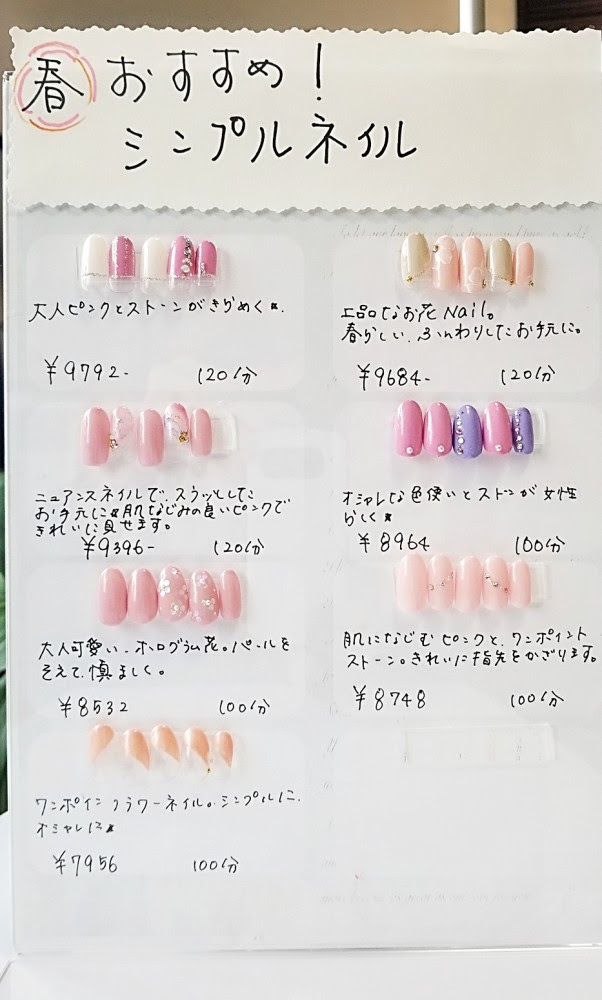 春 おすすめ!
シンプルネイル
大人ピンクとストーンがきらめく★.
¥9792- 120分
上品なお花Nail。
春らしい、ふんわりしたお手元に。
¥9684- 120分
ニュアンスネイルで、スラッとした
お手元に★肌なじみの良いピンクで
きれいに見せます。
¥9396- 120分
オシャレな色使いとストンが女性
らしく★
¥8964 100分
大人可愛い、ホログラム花。パールを
そえて、慎ましく。
¥8532 100分
肌になじむピンクと、ワンポイント
ストーン。きれいに指先をかざります。
¥8748 100分
ワンポイン フラワーネイル。シンプルに、
オシャレに★
¥7956 100分